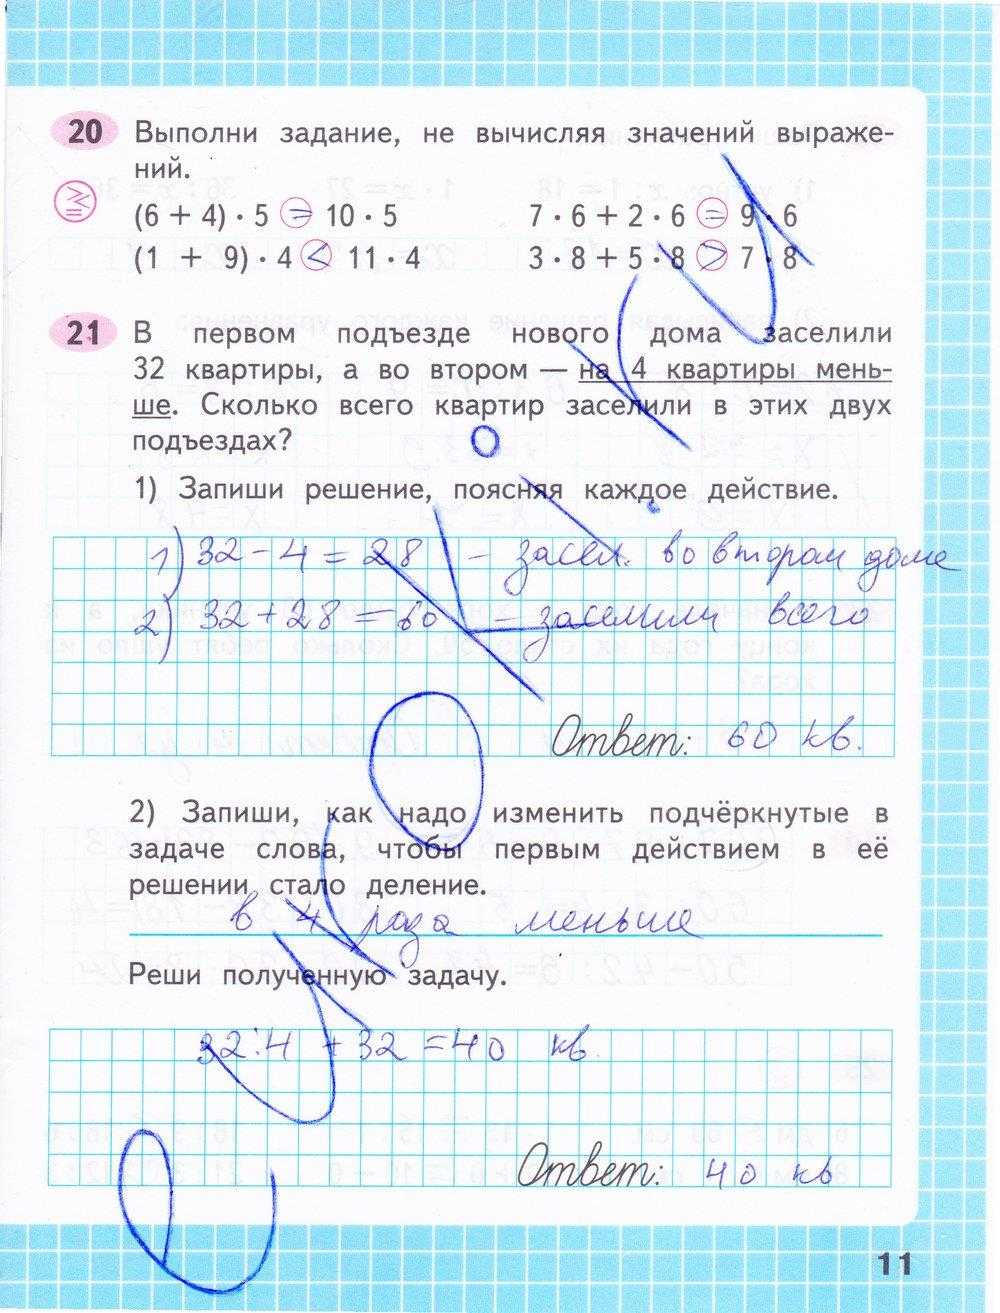 20 Выполни задание, не вычисляя значений выраже-
ний.
(6 + 4) · 5 = 10 · 5 7 · 6 + 2 · 6 = 9 · 6
(1 + 9) · 4 < 11 · 4 3 · 8 + 5 · 8 > 7 · 8
21 В первом подъезде нового дома заселили
32 квартиры, а во втором — на 4 квартиры мень-
ше. Сколько всего квартир заселили в этих двух
подъездах?
1) Запиши решение, поясняя каждое действие.
1) 32 - 4 = 28 - засел. во втором доме
2) 32 + 28 = 60 - заселили всего
Ответ: 60 кв.
2) Запиши, как надо изменить подчёркнутые в
задаче слова, чтобы первым действием в её
решении стало деление.
в 4 раза меньше
Реши полученную задачу.
32 : 4 + 32 = 40 кв.
Ответ: 40 кв
11
е уроки.ru